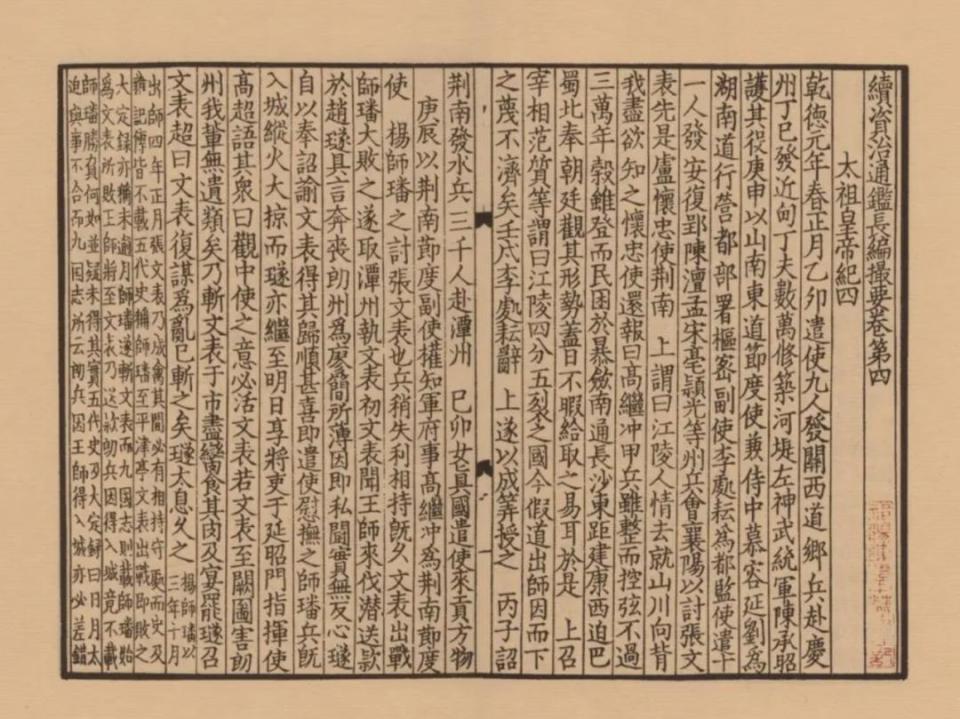 續資治通鑑長編撮要卷第四
太祖皇帝紀四
乾德元年春正月乙卯遣使九人發關西道鄉兵赴慶
州丁巳發近甸丁夫數萬修築河堤左神武統軍陳承昭
護其役庚申以山南東道節度使兼侍中慕容延釗為
湖南道行營都部署樞密副使李處耘為都監使遣十
一人發安復郢陳澶孟宋亳潁光等州兵會襄陽以討張文
表先是盧懷忠使荆南 上謂曰江陵人情去就山川向背
我盡欲知之懷忠使還報曰高繼冲甲兵雖整而控弦不過
三萬年穀雖登而民困於暴斂南通長沙東距建康西迫巴
蜀北奉朝廷觀其形勢蓋日不暇給取之易耳於是 上召
宰相范質等謂曰江陵四分五裂之國今假道出師因而下
之蔑不濟矣壬戌李處耘辭 上遂以成筭授之 丙子詔
荆南發水兵三千人赴潭州 己卯女真國遣使來貢方物
庚辰以荆南節度副使權知軍府事高繼冲為荆南節度
使 楊師璠之討張文表也兵稍失利相持旣久文表出戰
師璠大敗之遂取潭州執文表初文表聞王師來伐潜送款
於趙璲具言奔喪朗州為廖簡所薄因即私鬪實無反心璲
自以奉詔諭文表得其歸順甚喜即遣使慰撫之師璠兵旣
入城縱火大掠而璲亦繼至明日享將吏于延昭門指揮使
高超語其衆曰觀中使之意必活文表若文表至闕圖害朗
州我輩無遺類矣乃斬文表于市盡臠食其肉及宴罷璲召
文表超曰文表復謀為亂已斬之矣璲太息久之 楊師璠以三年十月
出師四年正月張文表乃成禽其間必有相持守
雜記傳皆不載五代史稱師璠至平津亭文表出戰即敗之
大定録亦稱未逾月師璠遂斬文表而九国志則載師璠始
為文表所敗王師將至文表乃送款朗兵因得入城竟不載
師璠勝負何如並疑未得其實五代史及大定録曰日月太
迫與事不合而九国志所云朗兵因王師得入城亦必差錯